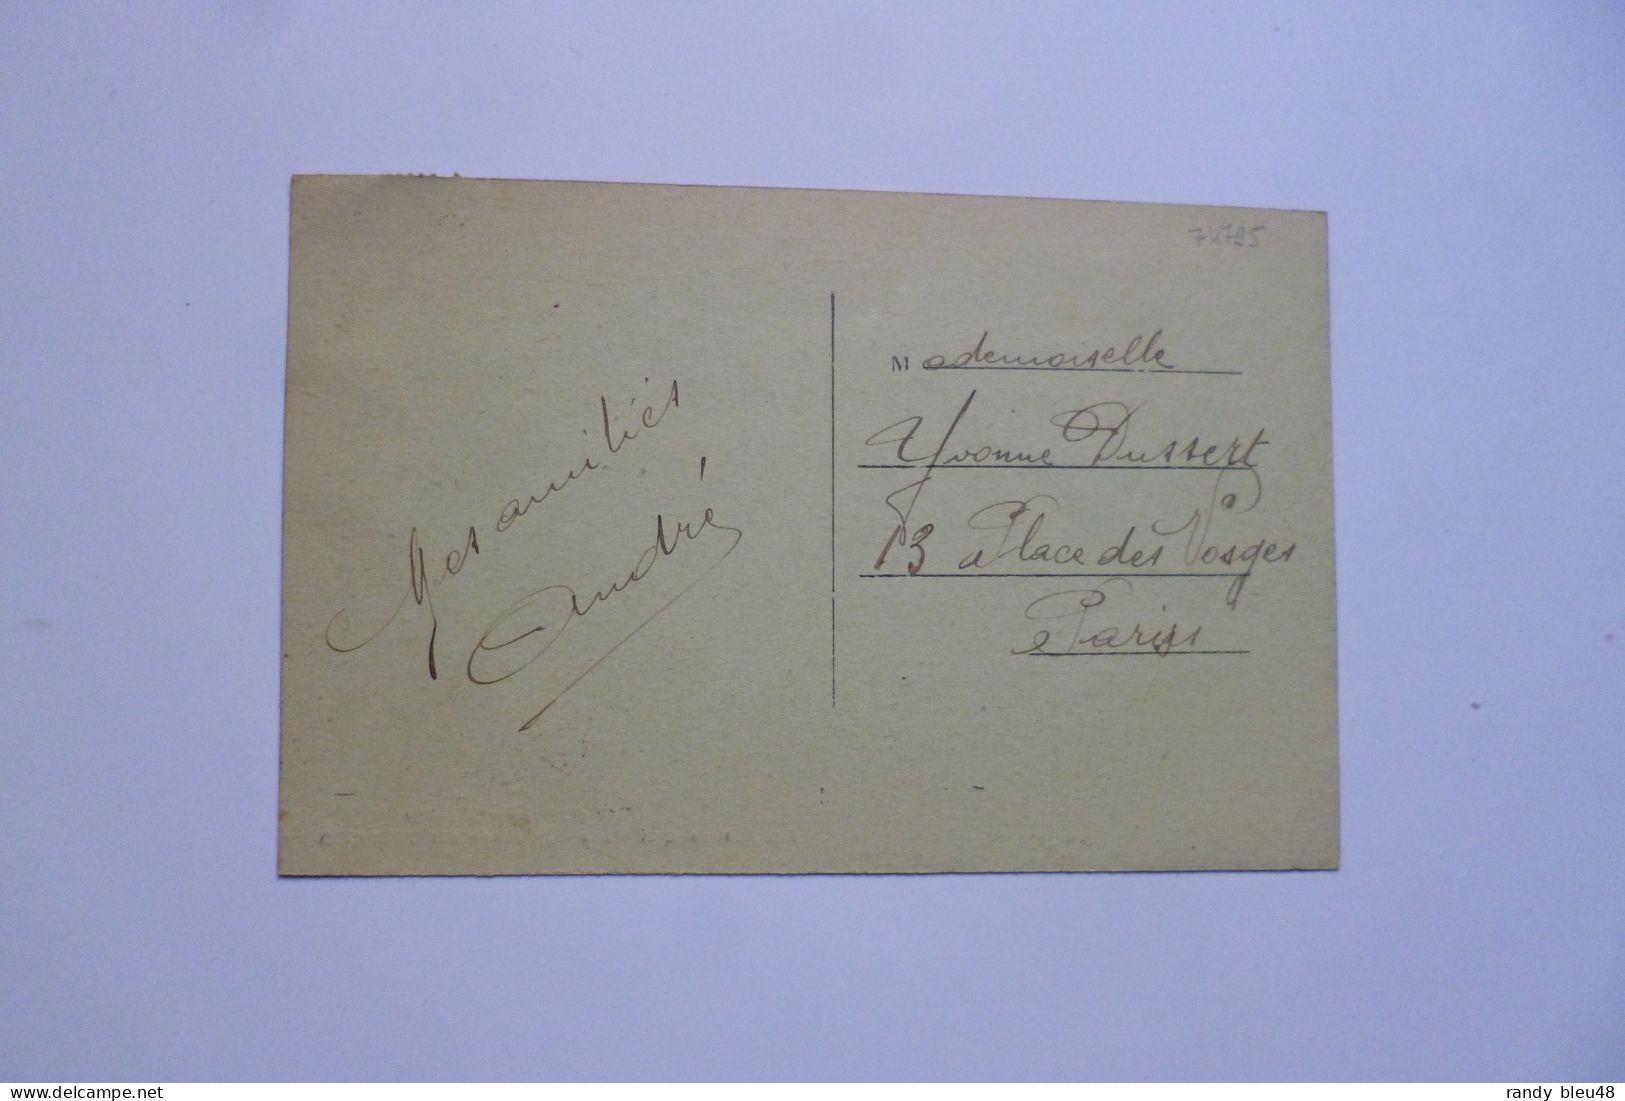 74795
Mes amitiés
André
Mademoiselle
Yvonne Dussert
13 Place des Vosges
Paris
delcampe.net
randy_bleu48